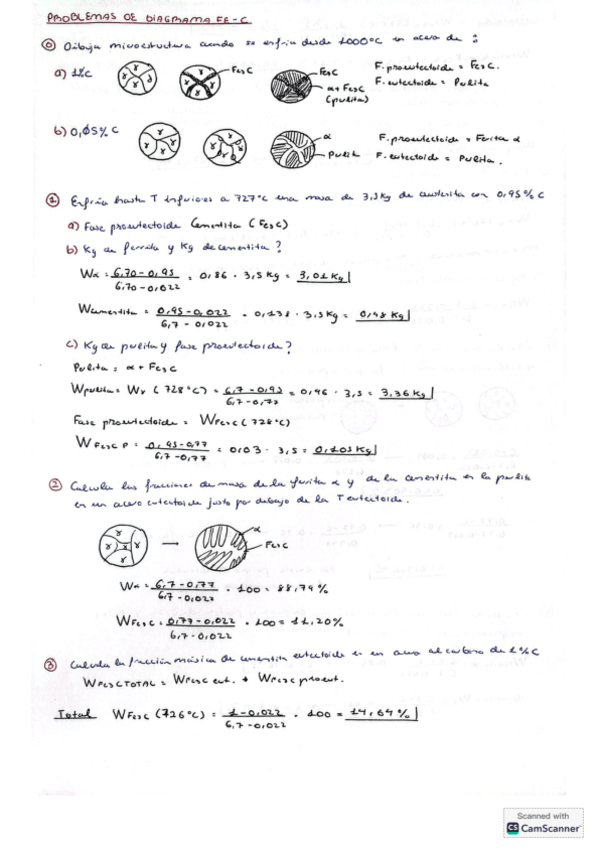 PROBLEMAS DE DIAGRAMA FE-C
⓪ Dibuja microestructura cuando se enfria desde 1000°C un acero de :
a) 1%C
γ γ γ γ
Fe₃C
Fe₃C
α + Fe₃C
(perlita)
F. proeutectoide = Fe₃C.
F. eutectoide = Perlita
b) 0,05% C
γ γ γ γ
α
Perlit
F. proeutectoide = Ferrita α
F. eutectoide = Perlita.
① Enfria hasta T inferiores a 727°C una masa de 3,5 kg de austerita con 0,95% C
a) Fase proeutectoide Cementita (Fe₃C)
b) Kg de ferrita y Kg de cementita?
Wα = 6,70 - 0,95 / 6,70 - 0,022 = 0,86 · 3,5 Kg = 3,01 Kg
Wcementita = 0,95 - 0,022 / 6,7 - 0,022 = 0,138 · 3,5 Kg = 0,48 Kg
c) Kg de perlita y fase proeutectoide?
Perlita = α + Fe₃C
Wperlita = Wγ (728°C) = 6,7 - 0,95 / 6,7 - 0,77 = 0,96 · 3,5 = 3,36 Kg
Fase proeutectoide = WFe₃C (728°C)
WFe₃C P = 0,95 - 0,77 / 6,7 - 0,77 = 0,03 · 3,5 = 0,105 Kg
② Calcula las fracciones de masa de la ferrita α y de la cementita en la perlita
en un acero eutectoide justo por debajo de la T eutectoide.
γ γ γ γ → α
Fe₃C
Wα = 6,7 - 0,77 / 6,7 - 0,022 · 100 = 88,79%
WFe₃C = 0,77 - 0,022 / 6,7 - 0,022 · 100 = 11,20%
③ Calcula la fracción másica de cementita eutectoide en un acero al carbono de 1%C
WFe₃C TOTAL = WFe₃C eut. + WFe₃C proeut.
Total WFe₃C (726°C) = 1 - 0,022 / 6,7 - 0,022 · 100 = 14,64%
Scanned with
CS CamScanner